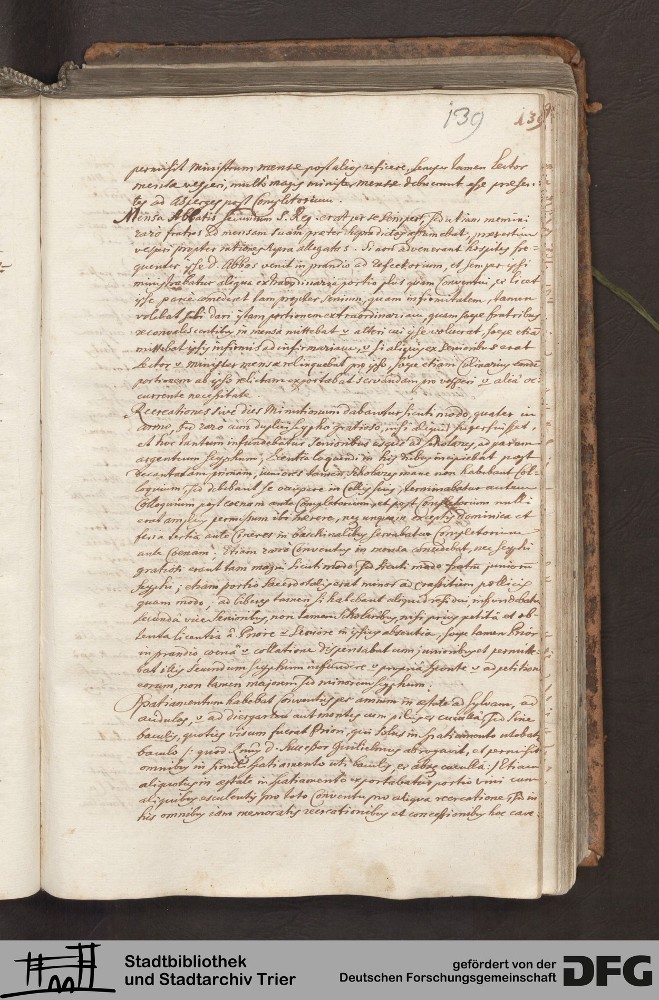 139 139
permisit ministrum mensæ post alios reficere, semper tamen Lector
mensæ vesperi, multi magis minister mensæ debuerunt esse præsen-
tes ad Asperges post Completorium.
Mensa Abbatis secundum S. Reg. erat per se semper, sed etiam
raro fratres ad mensam suam præter supradictos assumebat, præsertim
vesperi propter rationes supra allegatas. Si non advenerant hospites fre-
quenter ipse d. Abbas venit in prandio ad Refectorium, et semper ipsi
ministrabatur aliqua extraordinaria portio plus quam Conventui, et licet
ipse parce comederet tam propter senium, quam infirmitatem, tamen
volebat sibi dari istam portionem extraordinariam, quam sæpe fratribus
reconvalescentibus in mensa mittebat vel alteri cui ipse voluerat. Sæpe etiam
mittebat ipsis infirmis ad infirmariam, vel si aliquis ex Senioribus erat
Lector vel minister mensæ relinquebat pro ipso, sæpe etiam Culinarius
portionem ab ipso relictam exportabat servandam pro vesperi vel alia oc-
currente necessitate.
Recreationes sive dies Minutionum dabantur sicuti modo, quater in
anno, sed raro cum duplici scypho gratioso, nisi aliquid superfuisset,
et hoc tantum infundebatur Senioribus usque ad scholares, ad parvum
argenteum scyphum; licentia loquendi in his diebus incipiebat post
decantatam primam, iuniores tamen, scholares mane non habebant col-
loquium, sed debebant se occupare in Cellis suis, terminabatur autem
Colloquium post coenam ante Completorium, et post Completorium nulli
erat amplius permissum ibi hærere, nec unquam exceptis dominica et
feria tertia ante Cineres in bacchinalibus servabatur Completorium
ante Coenam; Etiam raro Conventus in mensa comedebat, nec scyphi
gratiosi erant tam magni sicuti modo, sed sicuti modo fratrum juniorum
scyphi; etiam portio Sacerdotalis erat minor ad crassitiem pollicis
quam modo; ad liberos tamen si habebant aliquid residui infundebatur
secunda vice Senioribus, non tamen Scholaribus, nisi prius petita et ob-
tenta licentia a Priore vel Seniore in ipsius absentia, sæpe tamen Prior
in prandio coena vel collatione dispensabat cum junioribus et permitte-
bat illis secundum scyphum infundere vel propria sponte vel ad petitionem
eorum, non tamen majorem sed minorem scyphum.
Spatiamentum habebat Conventus per annum in æstate ad sylvam, ad
caudulos, vel ad diesgarten aut montes cum pileis et cuculla, sed sine
baculis, quoties visum fuerat Priori, qui solus in spatiamento utebatur
baculo /: quod Rmus d. Successor Guilielmus abrogavit, et permisit
omnibus in simili spatiamento uti baculis et absque cuculla :/ Etiam
aliquoties in æstate in spatiamento exportabatur portio vini cum
aliquibus esculentis pro toto Conventu pro aliqua recreatione, sed in
his omnibus jam memoratis recreationibus et concessionibus hoc cave-
Stadtbibliothek
und Stadtarchiv Trier
gefördert von der
Deutschen Forschungsgemeinschaft
DFG